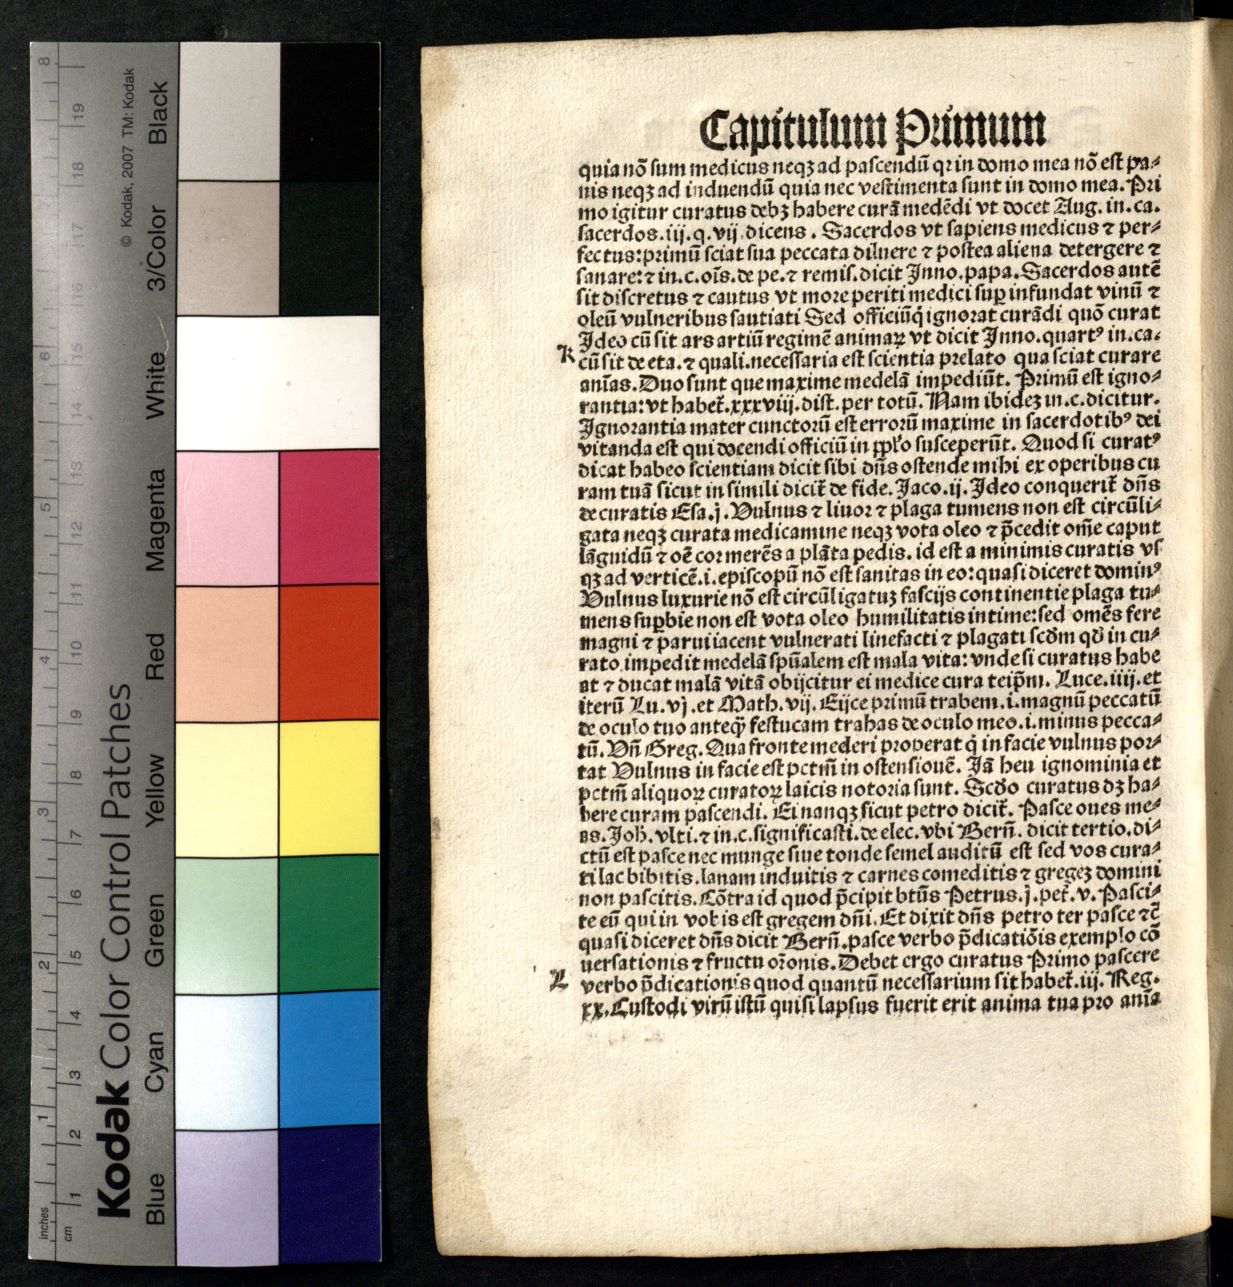 Kodak Color Control Patches
© Kodak, 2007 TM: Kodak
Blue Cyan Green Yellow Red Magenta White 3/Color Black
inches 1 2 3 4 5 6 8
cm 1 2 3 4 5 6 7 8 9 10 11 12 13 14 15 16 17 18 19
Capitulum Primum
quia nō sum medicus neqꝫ ad pascendū qr in domo mea nō est pa⸗
nis neqꝫ ad induendū quia nec vestimenta sunt in domo mea. Pri
mo igitur curatus debꝫ habere curā medēdi vt docet Aug. in. ca.
sacerdos. iij. q. vij dicens . Sacerdos vt sapiens medicus ⁊ per⸗
fectus: primū sciat sua peccata diluere ⁊ postea aliena detergere ⁊
sanare: ⁊ in. c. oīs. de pe. ⁊ remis. dicit Inno. papa. Sacerdos autē
sit discretus ⁊ cautus vt more periti medici suꝑ infundat vinū ⁊
oleū vulneribus sautiati Sed officiū q̇ ignorat curādi quō curat
Ideo cū sit ars artiū regimē animaꝝ vt dicit Inno. quartꝰ in. ca⸗
K
cū sit de eta. ⁊ quali. necessaria est scientia prelato qua sciat curare
anīas. Duo sunt que maxime medelā impediūt. Primū est igno⸗
rantia: vt habet̄. xxxviij. dist. per totū. Nam ibideꝫ in. c. dicitur.
Ignorantia mater cunctorū est errorū maxime in sacerdotibꝰ dei
vitanda est qui docendi officiū in ꝓplo susceperūt. Quod si curatꝰ
dicat habeo scientiam dicit sibi dn̄s ostende mihi ex operibus cu
ram tuā sicut in simili dicit̄ de fide. Jaco. ij. Ideo conquerit̄ dn̄s
de curatis Esa. j. Vulnus ⁊ liuor ⁊ plaga tumens non est circūli⸗
gata neqꝫ curata medicamine neqꝫ vota oleo ⁊ p̄cedit om̄e caput
lāguidū ⁊ oē cor merēs a plāta pedis. id est a minimis curatis vs
qꝫ ad verticē. i. episcopū nō est sanitas in eo: quasi diceret dominꝰ
Vulnus luxurie nō est circūligatuꝫ fascijs continentie plaga tu⸗
mens suꝑbie non est vota oleo humilitatis intime: sed omēs fere
magni ⁊ parui iacent vulnerati linefacti ⁊ plagati scd̄m qd̄ in cu⸗
rato impedit medelā spūalem est mala vita: vnde si curatus habe
at ⁊ ducat malā vitā obijcitur ei medice cura teip̄m. Luce. iiij. et
iterū Lu. vj. et Math. vij. Eijce primū trabem. i. magnū peccatū
de oculo tuo anteqꝙ̄ festucam trahas de oculo meo. i. minus pecca⸗
tū. Vn̄ Greg. Qua fronte mederi properat q̇ in facie vulnus por⸗
tat Vulnus in facie est pctm̄ in ostensiouē. Iā heu ignominia et
pctm̄ aliquoꝝ curatoꝝ laicis notoria sunt. Scd̄o curatus dꝫ ha⸗
bere curam pascendi. Ei nanqꝫ sicut petro dicit̄. Pasce oues me⸗
as. Joh. vlti. ⁊ in. c. significasti. de elec. vbi Bern̄. dicit tertio. di⸗
ctū est pasce nec munge siue tonde semel auditū est sed vos cura⸗
ti lac bibitis. lanam induitis ⁊ carnes comeditis ⁊ gregeꝫ domini
non pascitis. Cōtra id quod p̄cipit btūs Petrus. j. pet̄. v. Pasci⸗
te eū qui in vobis est gregem dn̄i. Et dixit dn̄s petro ter pasce ⁊c̄
quasi diceret dn̄s dicit Bern̄. pasce verbo p̄dicatiōis exemplo cō
uersationis ⁊ fructu or̄onis. Debet ergo curatus Primo pascere
L
verbo p̄dicationis quod quantū necessarium sit habet̄. iij. Reg.
xx. Custodi virū istū qui si lapsus fuerit erit anima tua pro anīa